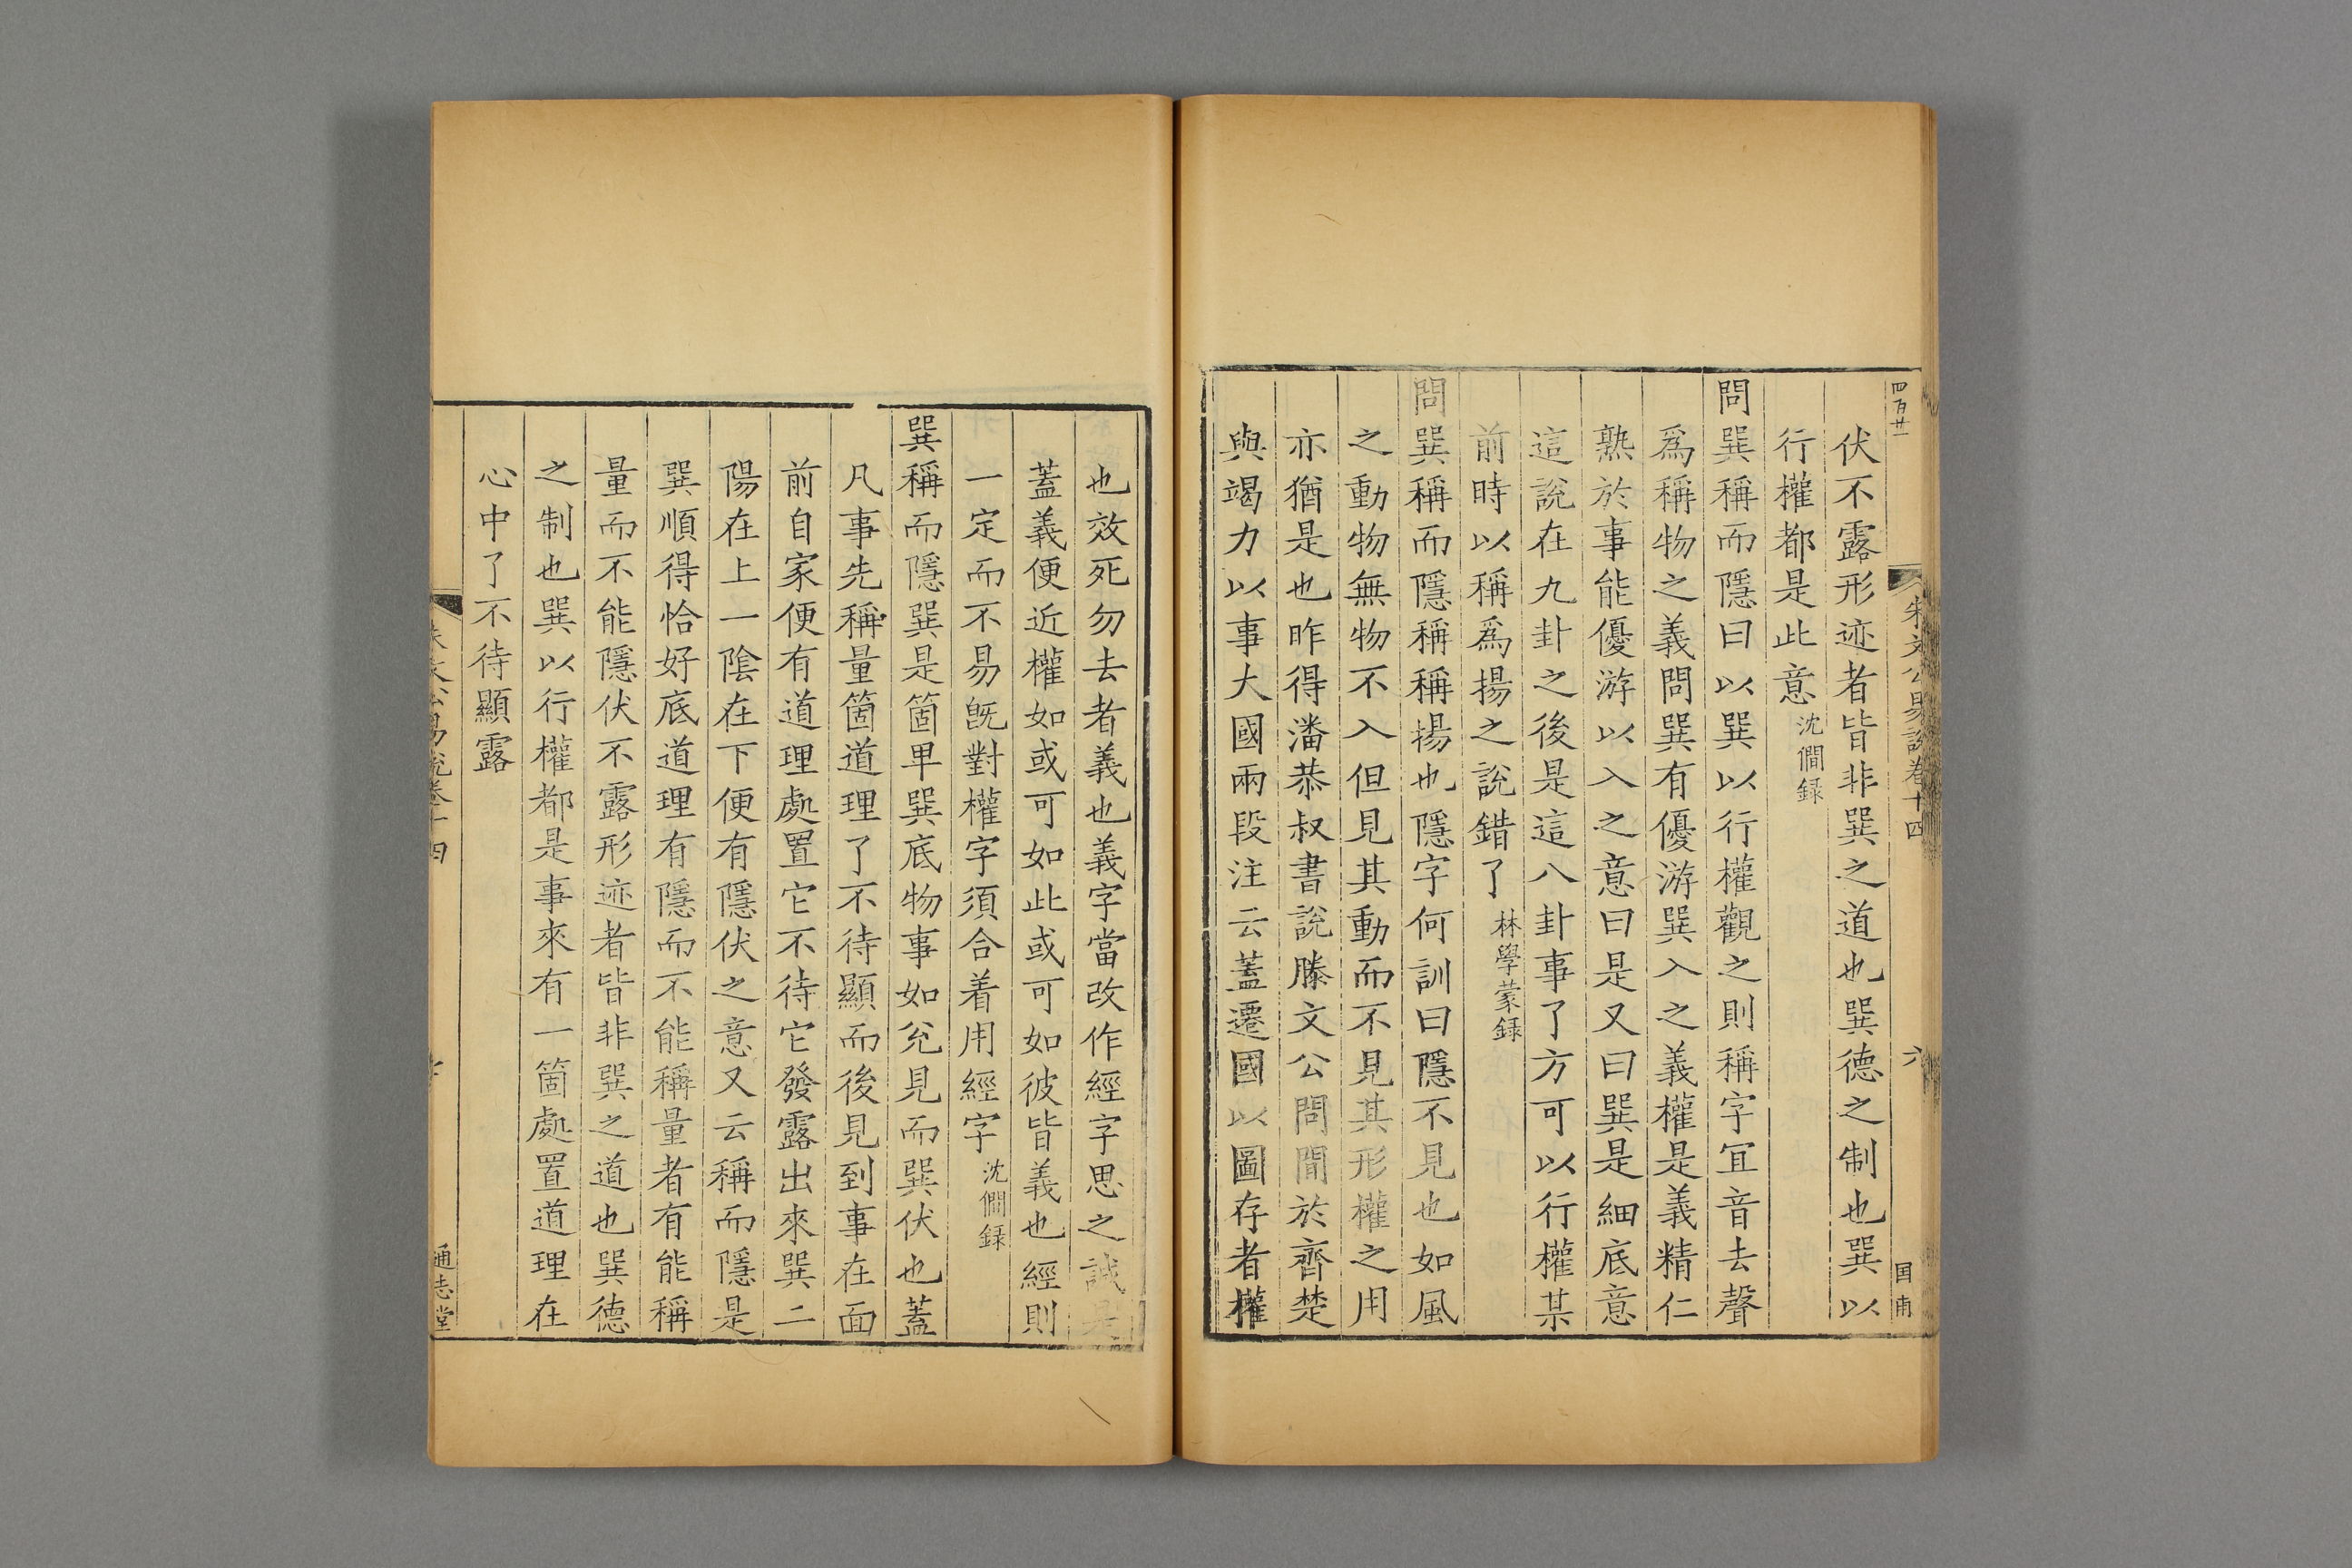 四百廿一
朱文公易説卷十四
六
国甫
伏不露形迹者皆非巽之道也巽德之制也巽以
行權都是此意沈僩録
問巽稱而隱曰以巽以行權觀之則稱字宜音去聲
爲稱物之義問巽有優游巽入之義權是義精仁
熟於事能優游以入之意曰是又曰巽是細底意
這說在九卦之後是這八卦事了方可以行權某
前時以稱爲揚之說錯了林學蒙録
問巽稱而隱稱稱揚也隱字何訓曰隱不見也如風
之動物無物不入但見其動而不見其形權之用
亦猶是也昨得潘恭叔書說滕文公問間於齊楚
與竭力以事大國兩段注云蓋遷國以圖存者權
也效死勿去者義也義字當改作經字思之誠是
蓋義便近權如或可如此或可如彼皆義也經則
一定而不易旣對權字須合着用經字沈僩録
巽稱而隱巽是箇卑巽底物事如兊見而巽伏也蓋
凡事先稱量箇道理了不待顯而後見到事在面
前自家便有道理處置它不待它發露出來巽二
陽在上一陰在下便有隱伏之意又云稱而隱是
巽順得恰好底道理有隱而不能稱量者有能稱
量而不能隱伏不露形迹者皆非巽之道也巽德
之制也巽以行權都是事來有一箇處置道理在
心中了不待顯露
朱文公易說卷十四
通志堂